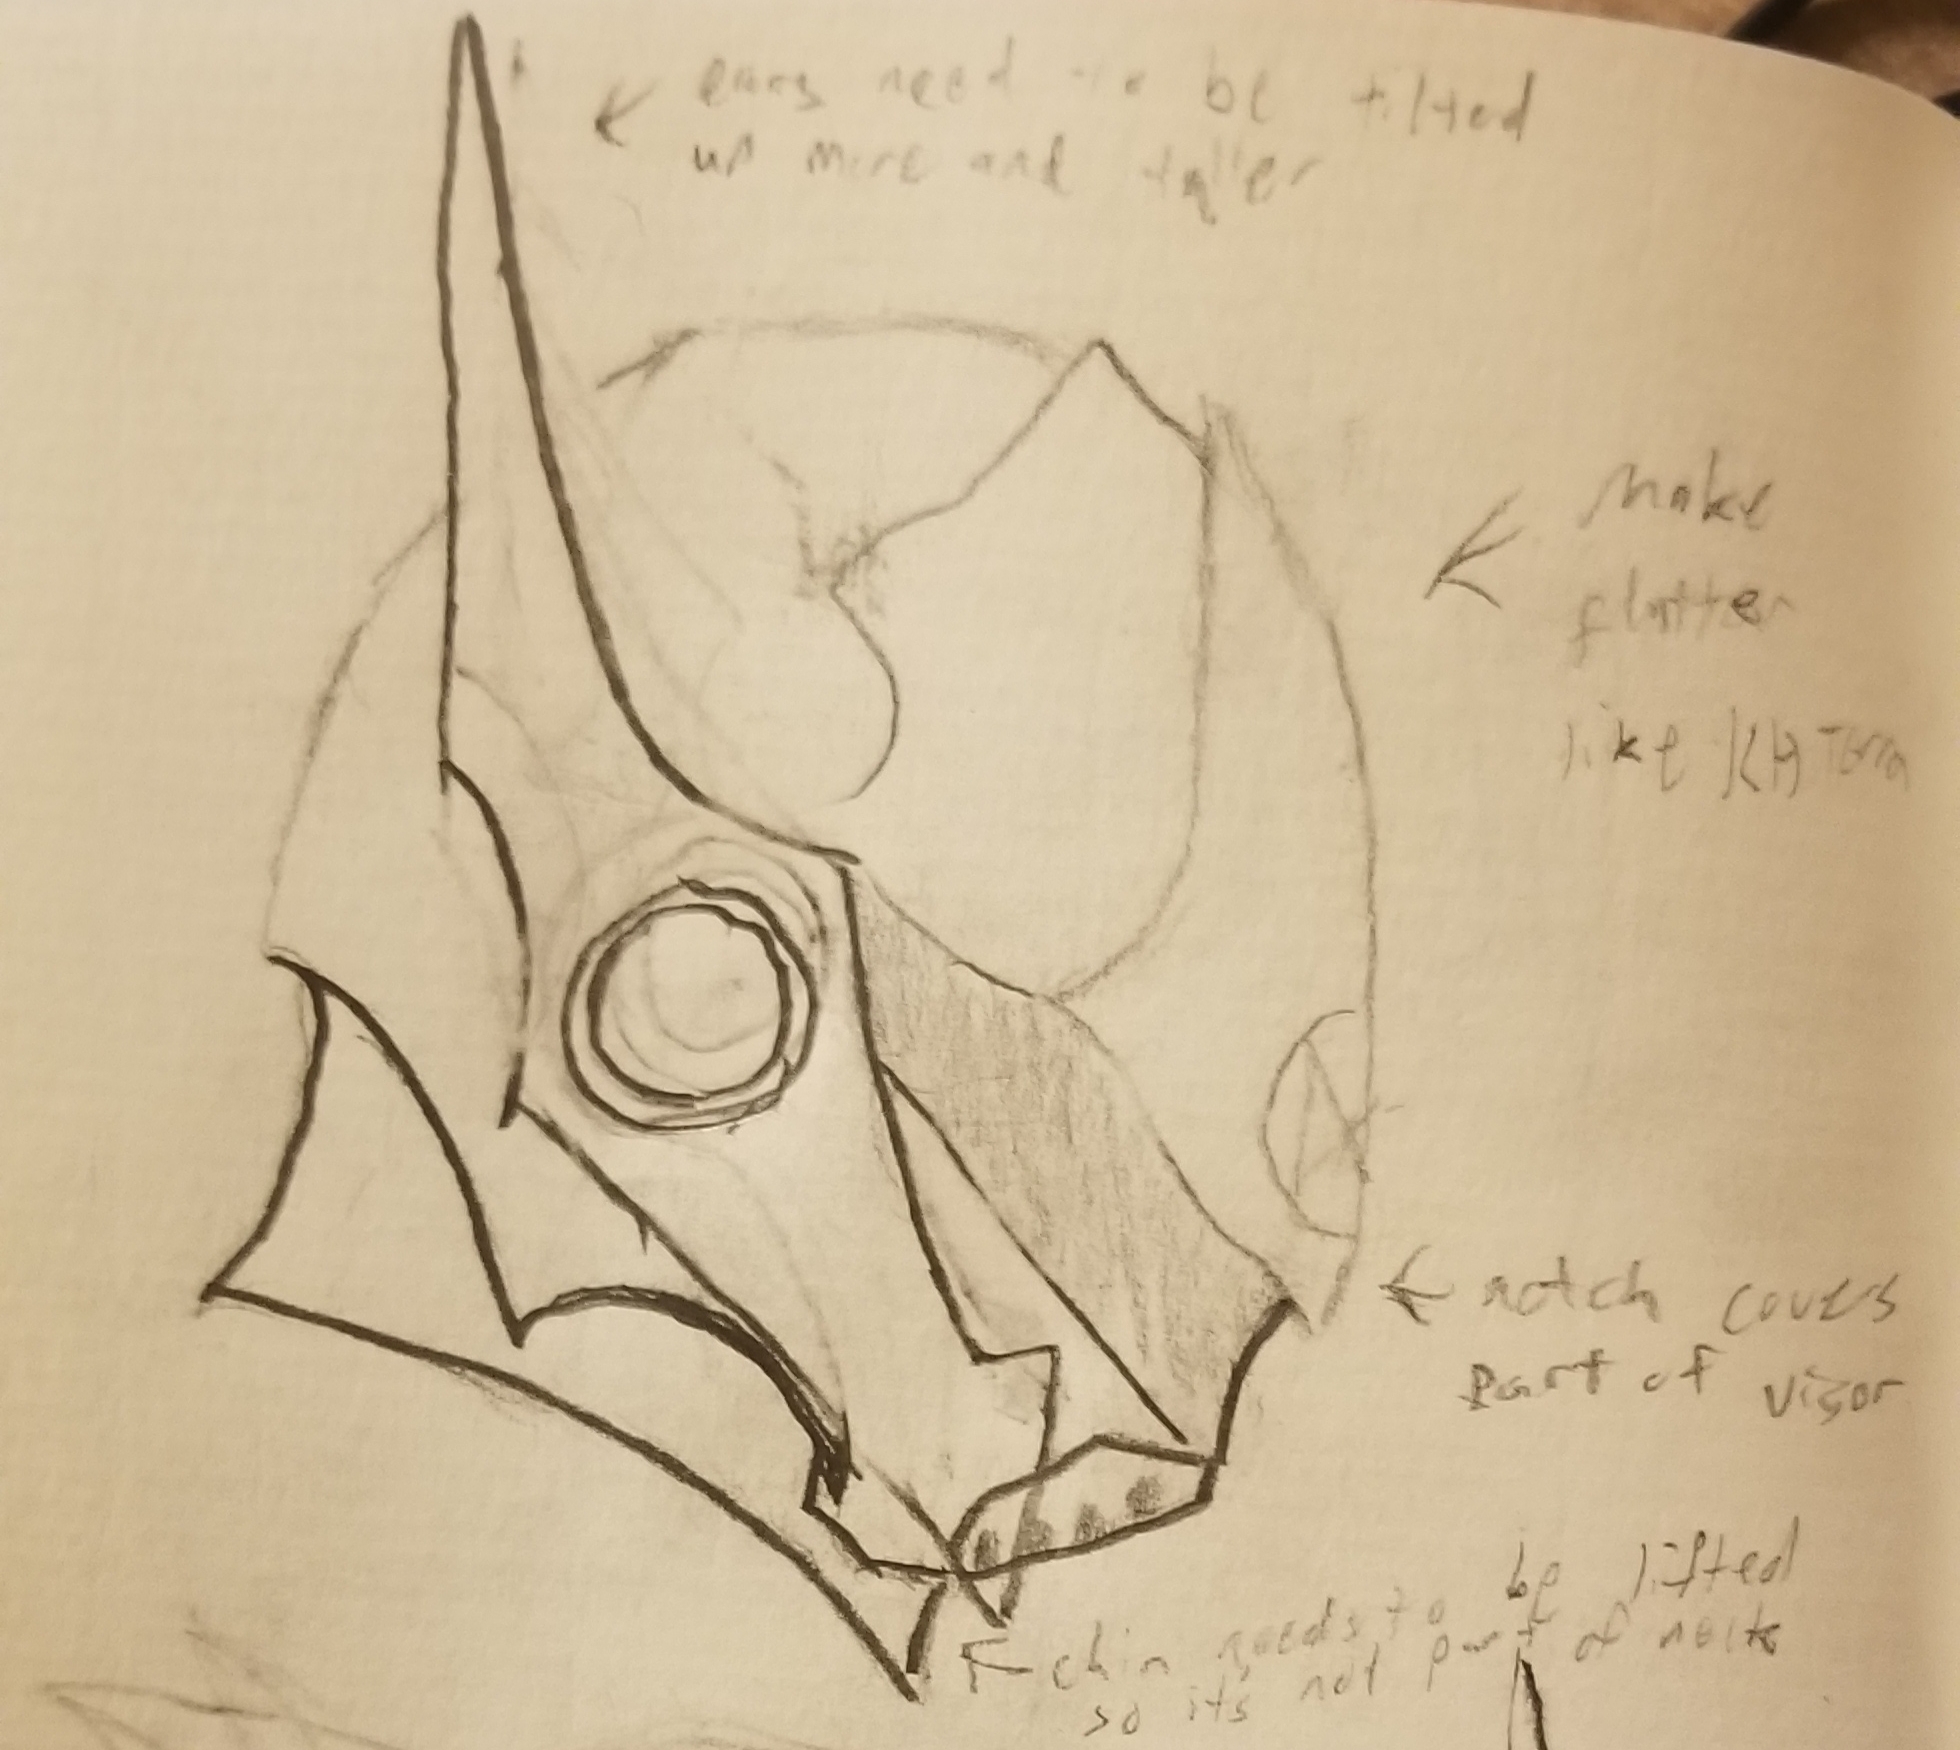 ears need to be tilted
up more and taller
make
flatter
like KH Terra
notch covers
part of visor
chin needs to be lifted
so its not part of neck